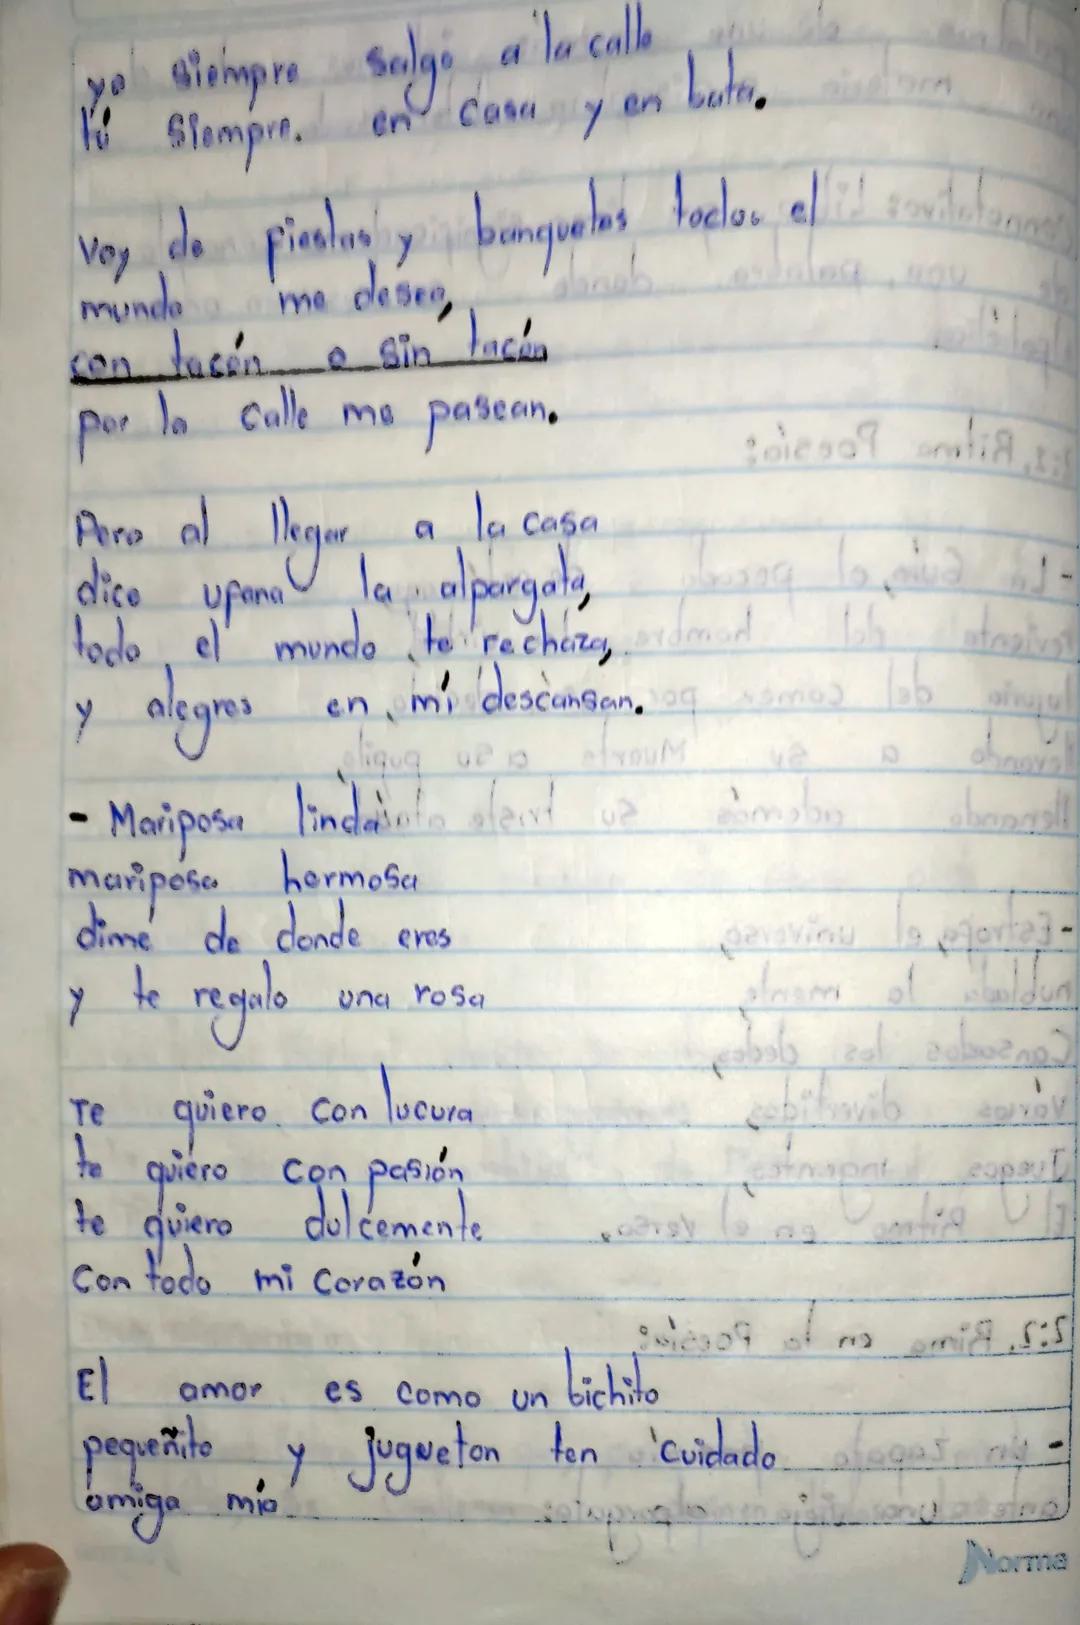 yo siempre salgo a la calle
tú siempre. en casa y en bata.
Voy de fiestas y banquetes todos el
mundo me desea,
con tacón o sin tacón
por la calle me pasean.
Pero al llegar a la casa
dice ufana la alpargata,
todo el mundo te rechaza,
y alegres en mi descansan.
- Mariposa linda
mariposa hermosa
dime de donde eres
y te regalo una rosa
Te quiero con lucura
te quiero con pasión
te quiero dulcemente
Con todo mi Corazón
El amor es como un bichito
pequeñito y jugueton ten cuidado
amiga mía
Norma